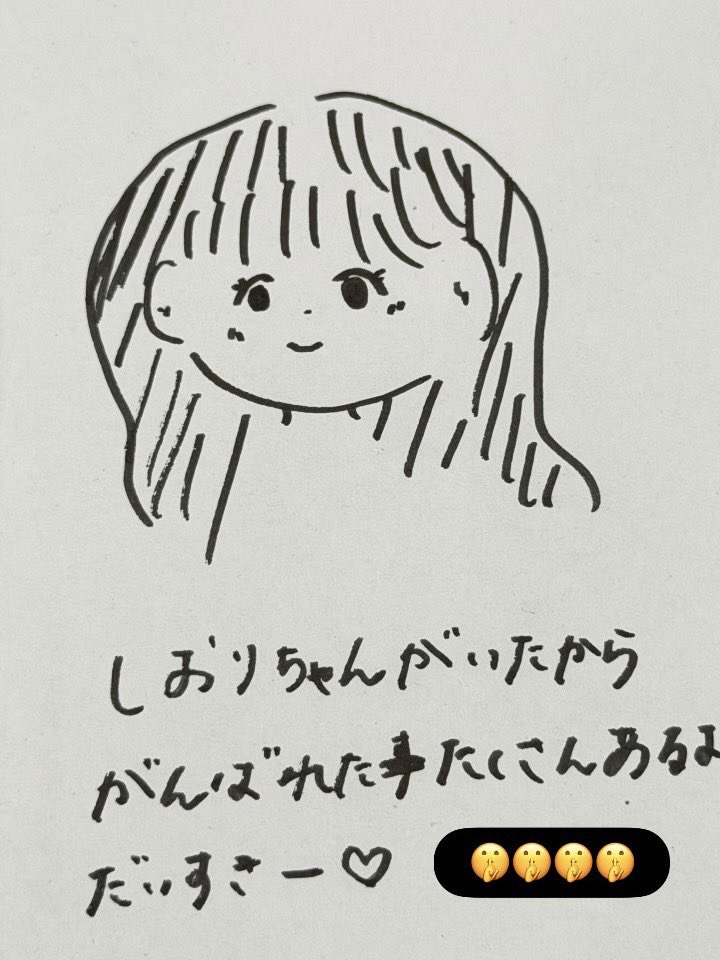 しおりちゃんがいたから
がんばれた事たくさんあるよ
だいすきー♡ 🤫🤫🤫🤫